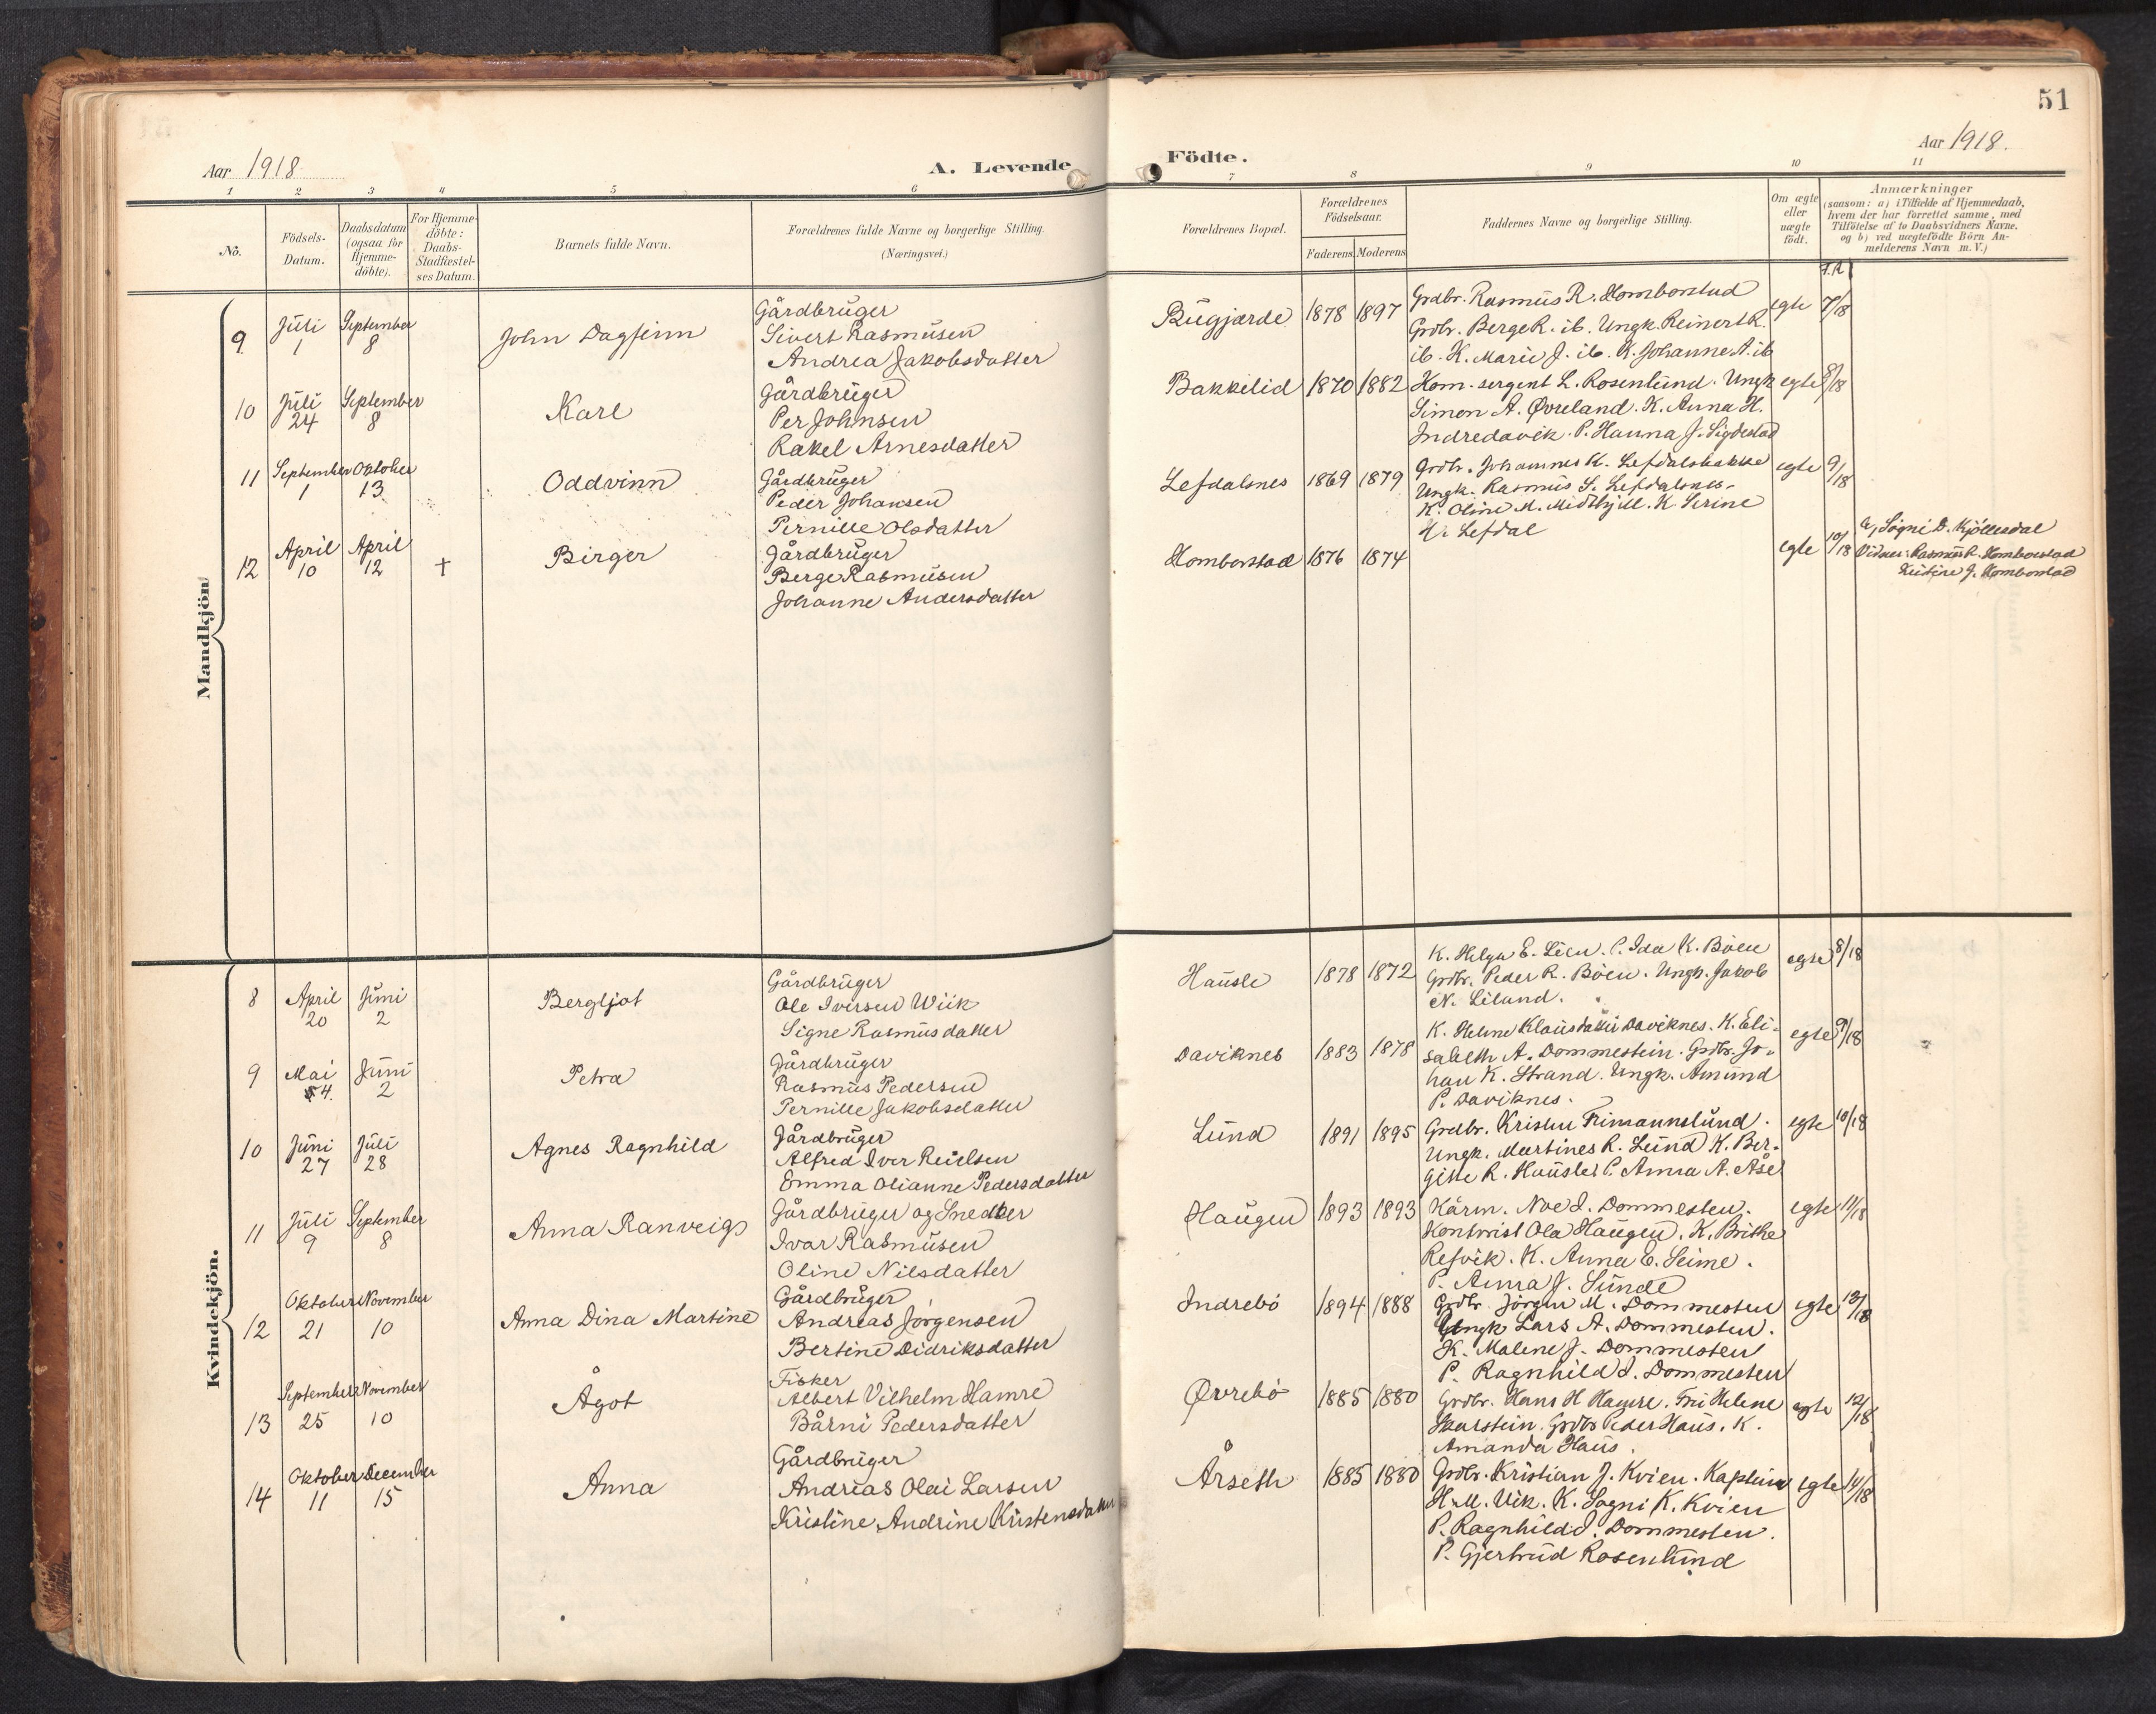 51
Aar 1918
Aar 1918.
A. Levende
Födte.
1 2 3 4 5 6 7 8 9 10 11
No.
Födsels-
Datum.
Daabsdatum
(ogsaa for
Hjemme-
döbte).
For Hjemme-
döbte:
Daabs-
Stadfæstel-
ses Datum.
Barnets fulde Navn.
Forældrenes fulde Navne og borgerlige Stilling.
(Næringsvei.)
Forældrenes Bopæl.
Forældrenes
Födselsaar.
Faderens Moderens
Faddernes Navne og borgerlige Stilling.
Om ægte
eller
uægte
födt.
Anmærkninger
(saasom: a) i Tilfælde af Hjemmedaab,
hvem der har forrettet samme, med
Tilföielse af to Daabsvidners Navne,
og b) ved uægtefödte Börn An-
melderens Navn m. V.)
Mandkjön
9
Juli
1
September
8
John Dagfinn
Gårdbruger
Sivert Rasmusen
Andrea Jakobsdatter
Bugjærde
1878 1897
Grdbr. Rasmus R. Homborstad
Grdbr. Berge R. ib. Ungk. Reinert R.
ib. K. Marie J. ib. K. Johanne A. ib
egte
7/18
10
Juli
24
September
8
Karl
Gårdbruger
Per Johnsen
Rakel Arnesdatter
Bakkelid
1870 1882
Kom. sergent L. Rosenlund. Ungk
Simon A. Øvreland. K. Anna H.
Indredavik. P. Hanna J. Sigdestad
egte
8/18
11
September
1
Oktober
13
Oddvinn
Gårdbruger
Peder Johansen
Pernille Olsdatter
Lefdalsnes
1869 1879
Grdbr. Johannes K. Lefdalsbakke
Ungk. Rasmus S. Lefdalsnes.
K. Oline M. Midtbjell. K. Serine
Lefdal
egte
9/18
12
April
10
April
12
†
Birger
Gårdbruger
Berge Rasmusen
Johanne Andersdatter
Homborstad
1876 1874
egte
10/18
a, Sogni D. Kjöllesdal
Vidner: Rasmus R. Homborstad
J. Homborstad
Kvindekjön.
8
April
20
Juni
2
Bergljot
Gårdbruger
Ole Iversen Wiik
Signe Rasmusdatter
Hausle
1878 1872
K. Helga E. Lien. P. Ida K. Böen
Grdbr. Peder R. Böen. Ungk. Jakob
N. Liland.
egte
8/18
9
Mai
4.
Juni
2
Petra
Gårdbruger
Rasmus Pedersen
Pernille Jakobsdatter
Daviknes
1883 1878
K. Helene Klausdatter Daviknes. K. Eli-
sabeth A. Dommestein. Grdbr. Jo-
han K. Strand. Ungk. Amund
P. Daviknes.
egte
9/18
10
Juni
27
Juli
28
Agnes Ragnhild
Gårdbruger
Alfred Iver
Emma Olianne Pedersdatter
Lund
1891 1895
Grdbr. Kristen Frimannslund.
Ungk. Martines R. Lund K. Ber-
gitte R. Hausle. P. Anna A. Åse
egte
10/18
11
Juli
9
September
8
Anna Ranveig
Gårdbruger og Snedker
Ivar Rasmusen
Oline Nilsdatter
Haugen
1893 1893
Kårm. Noe I. Dommesten.
Kontorist Ola Haugen. K. Brithe
Refvik. K. Anna E. Seime.
P. Anna J. Sunde
egte
11/18
12
Oktober
21
November
10
Anna Dina Martine
Gårdbruger
Andreas Jörgensen
Bertine Didriksdatter
Indrebö
1894 1888
Grdbr. Jörgen M. Dommesten
Ungk Lars A. Dommesten.
K. Malene J. Dommesten
P. Ragnhild I. Dommesten
egte
13/18
13
September
25
November
10
Ågot
Fisker
Albert Vilhelm Hamre
Bårni Pedersdatter
Øvrebö
1885 1880
Grdbr. Hans H Hamre. Fru Helene
Haarstein. Grdbr Peder Haus. K.
Amanda Haus.
egte
12/18
14
Oktober
11
December
15
Anna
Gårdbruger
Andreas Olai Larsen
Kristine Andrine Kristensdatter
Årseth
1885 1880
Grdbr. Kristian J. Kvien. Kaptein
H. M. Vik. K. Sogni K. Kvien
P. Ragnhild I. Dommesten.
P. Gjertrud Rosenlund
egte
14/18